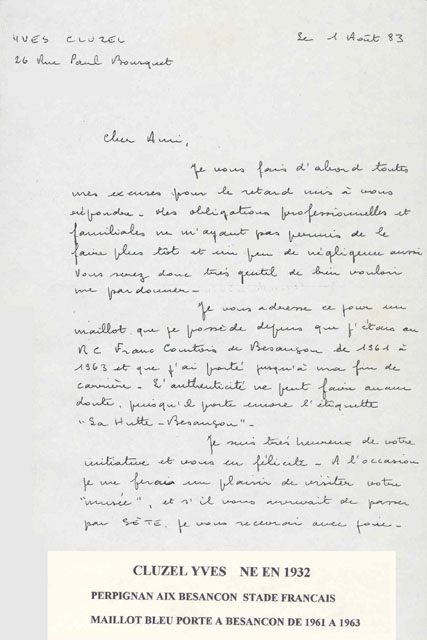 YVES CLUZEL
Le 1 Août 83
26 Rue Paul Bousquet
Cher Ami,
Je vous fais d'abord toutes
mes excuses pour le retard mis à vous
répondre - des obligations professionnelles et
familiales ne m'ayant pas permis de le
faire plus tôt et un peu de négligence aussi
Vous serez donc très gentil de bien vouloir
me pardonner -
Je vous adresse ce jour un
maillot que je possède depuis que j'étais au
RC Franc Comtois de Besançon de 1961 à
1963 et que j'ai porté jusqu'à ma fin de
carrière - L'authenticité ne peut faire aucun
doute, puisqu'il porte encore l'étiquette
"La Hutte - Besançon" -
Je suis très heureux de votre
initiative et vous en félicite - A l'occasion
je me ferais un plaisir de visiter votre
"musée", et s'il vous arrivait de passer
par SÈTE, je vous recevrai avec joie -
CLUZEL YVES NE EN 1932
PERPIGNAN AIX BESANCON STADE FRANCAIS
MAILLOT BLEU PORTE A BESANCON DE 1961 A 1963